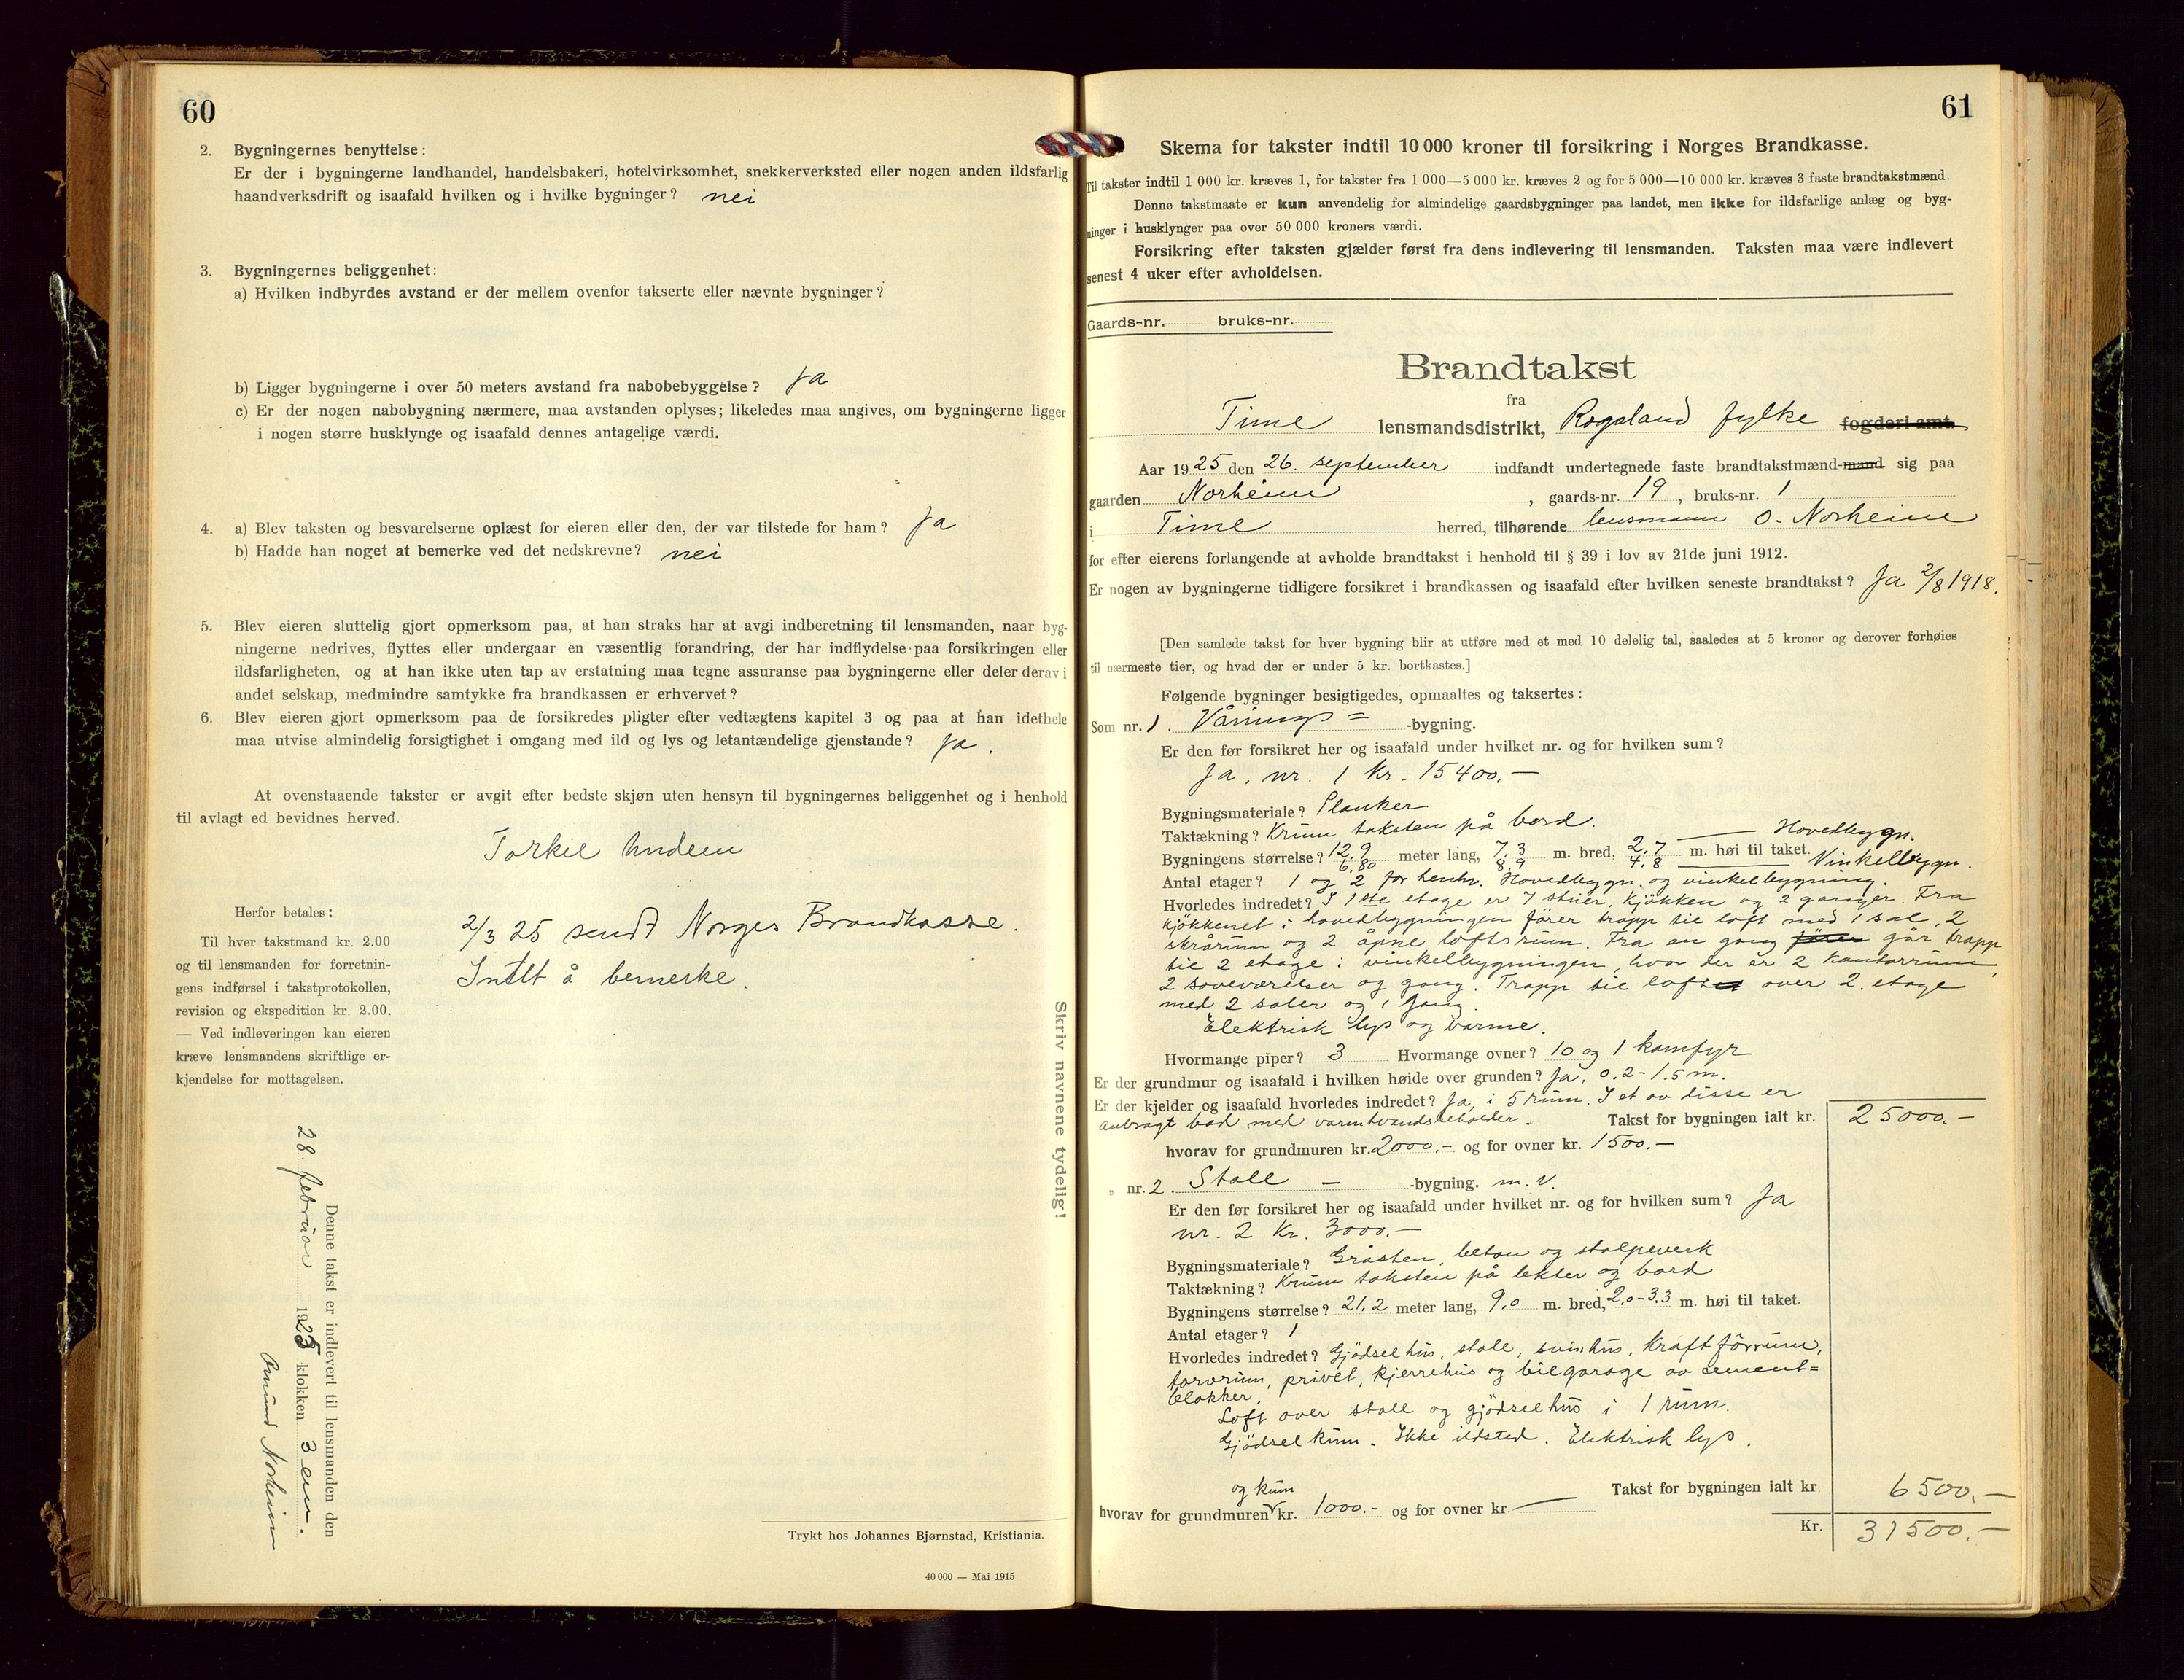 60
2. Bygningernes benyttelse:
Er der i bygningerne landhandel, handelsbakeri, hotelvirksomhet, snekkerverksted eller nogen anden ildsfarlig
haandverksdrift og isaafald hvilken og i hvilke bygninger? nei
3. Bygningernes beliggenhet:
a) Hvilken indbyrdes avstand er der mellem ovenfor takserte eller nævnte bygninger?
b) Ligger bygningerne i over 50 meters avstand fra nabobebyggelse? Ja
c) Er der nogen nabobygning nærmere, maa avstanden oplyses; likeledes maa angives, om bygningerne ligger
i nogen større husklynge og isaafald dennes antagelige værdi.
4. a) Blev taksten og besvarelserne oplæst for eieren eller den, der var tilstede for ham? Ja
b) Hadde han noget at bemerke ved det nedskrevne? nei
5. Blev eieren sluttelig gjort opmerksom paa, at han straks har at avgi indberetning til lensmanden, naar byg-
ningerne nedrives, flyttes eller undergaar en væsentlig forandring, der har indflydelse paa forsikringen eller
ildsfarligheten, og at han ikke uten tap av erstatning maa tegne assuranse paa bygningerne eller deler derav i
andet selskap, medmindre samtykke fra brandkassen er erhvervet?
6. Blev eieren gjort opmerksom paa de forsikredes pligter efter vedtægtens kapitel 3 og paa at han idethele
maa utvise almindelig forsigtighet i omgang med ild og lys og letantændelige gjenstande? Ja.
At ovenstaaende takster er avgit efter bedste skjøn uten hensyn til bygningernes beliggenhet og i henhold
til avlagt ed bevidnes herved.
Torkel Undem
Herfor betales:
Til hver takstmand kr. 2.00
og til lensmanden for forretnin-
gens indførsel i takstprotokollen,
revision og ekspedition kr. 2.00.
— Ved indleveringen kan eieren
kræve lensmandens skriftlige er-
kjendelse for mottagelsen.
2/3 25 sendt Norges Brandkasse.
Intet å bemerke.
Skriv navnene tydelig!
Denne takst er indlevert til lensmanden den
28. februar 1925 klokken 3 em.
Omund Norheim
Trykt hos Johannes Bjørnstad, Kristiania.
40 000 — Mai 1915
61
Skema for takster indtil 10 000 kroner til forsikring i Norges Brandkasse.
Til takster indtil 1 000 kr. kræves 1, for takster fra 1 000—5 000 kr. kræves 2 og for 5 000—10 000 kr. kræves 3 faste brandtakstmænd.
Denne takstmaate er kun anvendelig for almindelige gaardsbygninger paa landet, men ikke for ildsfarlige anlæg og byg-
ninger i husklynger paa over 50 000 kroners værdi.
Forsikring efter taksten gjælder først fra dens indlevering til lensmanden. Taksten maa være indlevert
senest 4 uker efter avholdelsen.
Gaards-nr. bruks-nr.
Brandtakst
fra
Time lensmandsdistrikt, Rogaland fylke fogderi amt.
Aar 1925 den 26. september indfandt undertegnede faste brandtakstmænd-mand sig paa
gaarden Norheim, gaards-nr. 19, bruks-nr. 1
i Time herred, tilhørende lensmann O. Norheim
for efter eierens forlangende at avholde brandtakst i henhold til § 39 i lov av 21de juni 1912.
Er nogen av bygningerne tidligere forsikret i brandkassen og isaafald efter hvilken seneste brandtakst? Ja 2/8 1918.
[Den samlede takst for hver bygning blir at utføre med et med 10 delelig tal, saaledes at 5 kroner og derover forhøies
til nærmeste tier, og hvad der er under 5 kr. bortkastes.]
Følgende bygninger besigtigedes, opmaaltes og taksertes:
Som nr. 1. Vånings= -bygning.
Er den før forsikret her og isaafald under hvilket nr. og for hvilken sum?
Ja, nr. 1 Kr. 15400.-
Bygningsmateriale? Planker
Taktækning? Krum taksten på bord.
Hovedbygn.
Bygningens størrelse? 12.9 meter lang, 7.3 m. bred, 2.7 m. høi til taket.
6.80 8.9 4.8 Vinkelbygn.
Antal etager? 1 og 2 for henhv. Hovedbygn. og vinkelbygning.
Hvorledes indredet? I 1ste etage er 7 stuer, kjøkken og 2 ganger. Fra
kjøkkenet i hovedbygningen fører trapp til loft med 1 sal, 2
skrårum og 2 åpne loftsrum. Fra en gang fører går trapp
til 2 etage i vinkelbygningen, hvor der er 2 kontorrum,
2 soveværelser og gang. Trapp til loftet over 2. etage
med 2 saler og 1 gang.
Elektrisk lys og varme.
Hvormange piper? 3 Hvormange ovner? 10 og 1 komfyr
Er der grundmur og isaafald i hvilken høide over grunden? Ja, 0.2-1.5 m.
Er der kjelder og isaafald hvorledes indredet? Ja, i 5 rum. I et av disse er
anbragt bad med varmtvandsbeholder. Takst for bygningen ialt kr. 25000.-
hvorav for grundmuren kr. 2000.- og for ovner kr. 1500.-
„ nr. 2. Stall - -bygning. m. v.
Er den før forsikret her og isaafald under hvilket nr. og for hvilken sum? Ja
nr. 2 Kr. 3000.-
Bygningsmateriale? Gråsten, beton og stolpeverk
Taktækning? Krum taksten på lekter og bord
Bygningens størrelse? 21.2 meter lang, 9.0 m. bred, 2.0-3.3 m. høi til taket.
Antal etager? 1
Hvorledes indredet? Gjødselhus, stall, svinhus, kraftfôrrum,
torvrum, privet, kjerrehus og bilgarage av cement=
blokker.
Loft over stall og gjødselhus i 1 rum.
Gjødselkum. Ikke ildsted. Elektrisk lys.
Takst for bygningen ialt kr 6500.-
og kum
hvorav for grundmuren kr. 1000.- og for ovner kr. —
Kr. 31500.-